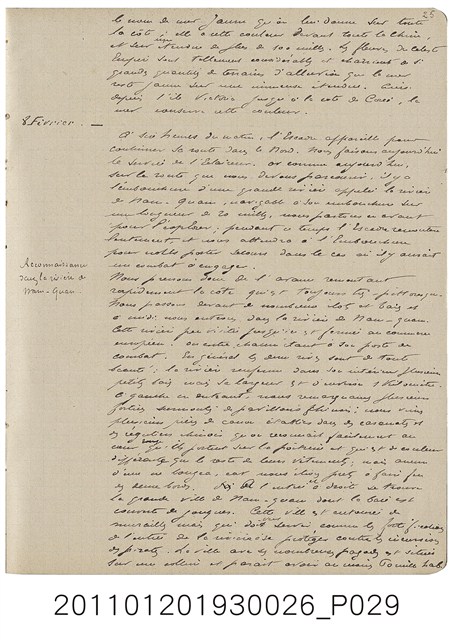 25
le nom de mer Jaune qu'on lui donne sur toute
la côte ; elle a cette couleur devant toute la Chine,
et sur une étendue de plus de 100 milles. Les fleuves du Céleste
Empire sont tellement considérables et charrient a si
grande quantité de terrains d'alluvion que la mer
reste jaune sur une immense étendue. Ainsi
depuis l'île Victoria jusqu'à la côte de Corée, la
mer conserve cette couleur.
8 Février. —
A six heures du matin, l'Escadre appareille pour
continuer sa route dans le Nord. Nous faisons aujourd'hui
le service de l'Eclaireur. Or comme aujourd'hui,
sur la route que nous devons parcourir, il y a
l'embouchure d'une grande rivière appelée la rivière
de Nam-Quan, navigable à son embouchure sur
une longueur de 20 milles, nous partons en avant
pour l'explorer ; pendant ce temps l'Escadre remontera
lentement et nous attendra à l'embouchure
pour nous porter secours dans le cas où il y aurait
un combat à engager.
Reconnaissance
dans la rivière de
Nam-Quan.
Nous prenons donc de l'avance remontant
rapidement la côte qui est toujours très pittoresque.
Nous passons devant de nombreux îlots et baies et
à midi nous entrons dans la rivière de Nam-quan.
Cette rivière peu visitée jusqu'ici est fermée au commerce
européen : on entre chacun étant à son poste de
combat. En général les deux rives sont de toute
beauté ; la rivière renferme dans son intérieur plusieurs
petites baies mais sa largeur est d'environ 1 kilomètre.
A gauche en entrant, nous remarquons plusieurs
fortins surmontés de pavillons chinois ; nous vîmes
plusieurs pièces de canon établies dans les casemates et
les réguliers chinois qu'on reconnait facilement au
cœur rouge qu'ils portent sur la poitrine et qui est de couleur
différente que le reste de leurs vêtements ; mais aucun
d'eux ne bougea, car nous étions prêts à faire feu
des deux bords. De l'entrée à droite se trouve
la grande ville de Nam-quan dont la baie est
couverte de jonques. Cette ville est entourée de
murailles mais qui doivent servir, comme les forts situés
à l'entrée de la rivière de protéger contre les incursions
des pirates. La ville avec ses nombreuses pagodes est située
sur une colline et parait avoir au moins 70 mille hab.
201101201930026_P029